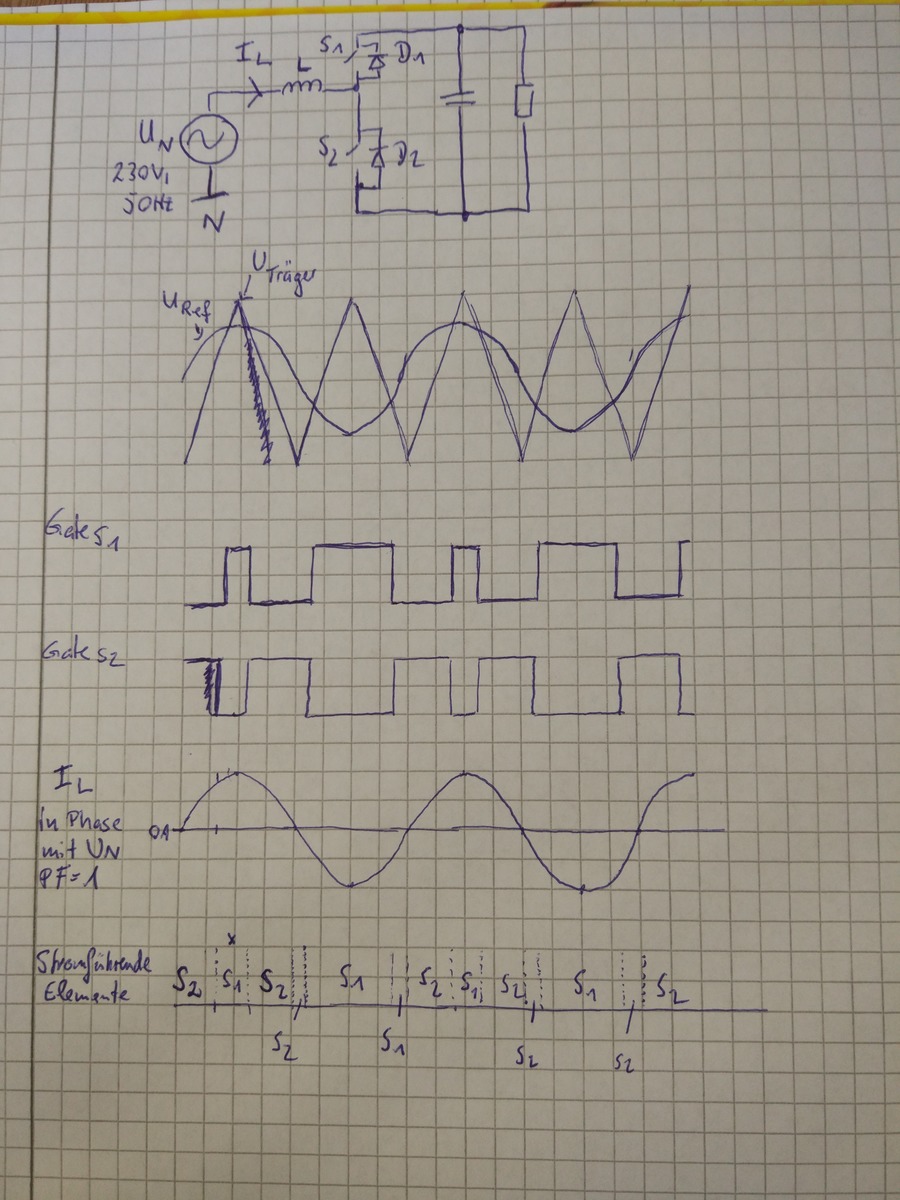 I_L
S1
D1
L
U_N
230V,
50Hz
N
S2
D2
U_Träger
U_Ref
Gate S1
Gate S2
I_L
in Phase
mit U_N
PF=1
0A
x
Stromführende
Elemente
S2 S1 S2 S1 S2 S1 S2 S1 S2
S2 S1 S2 S2